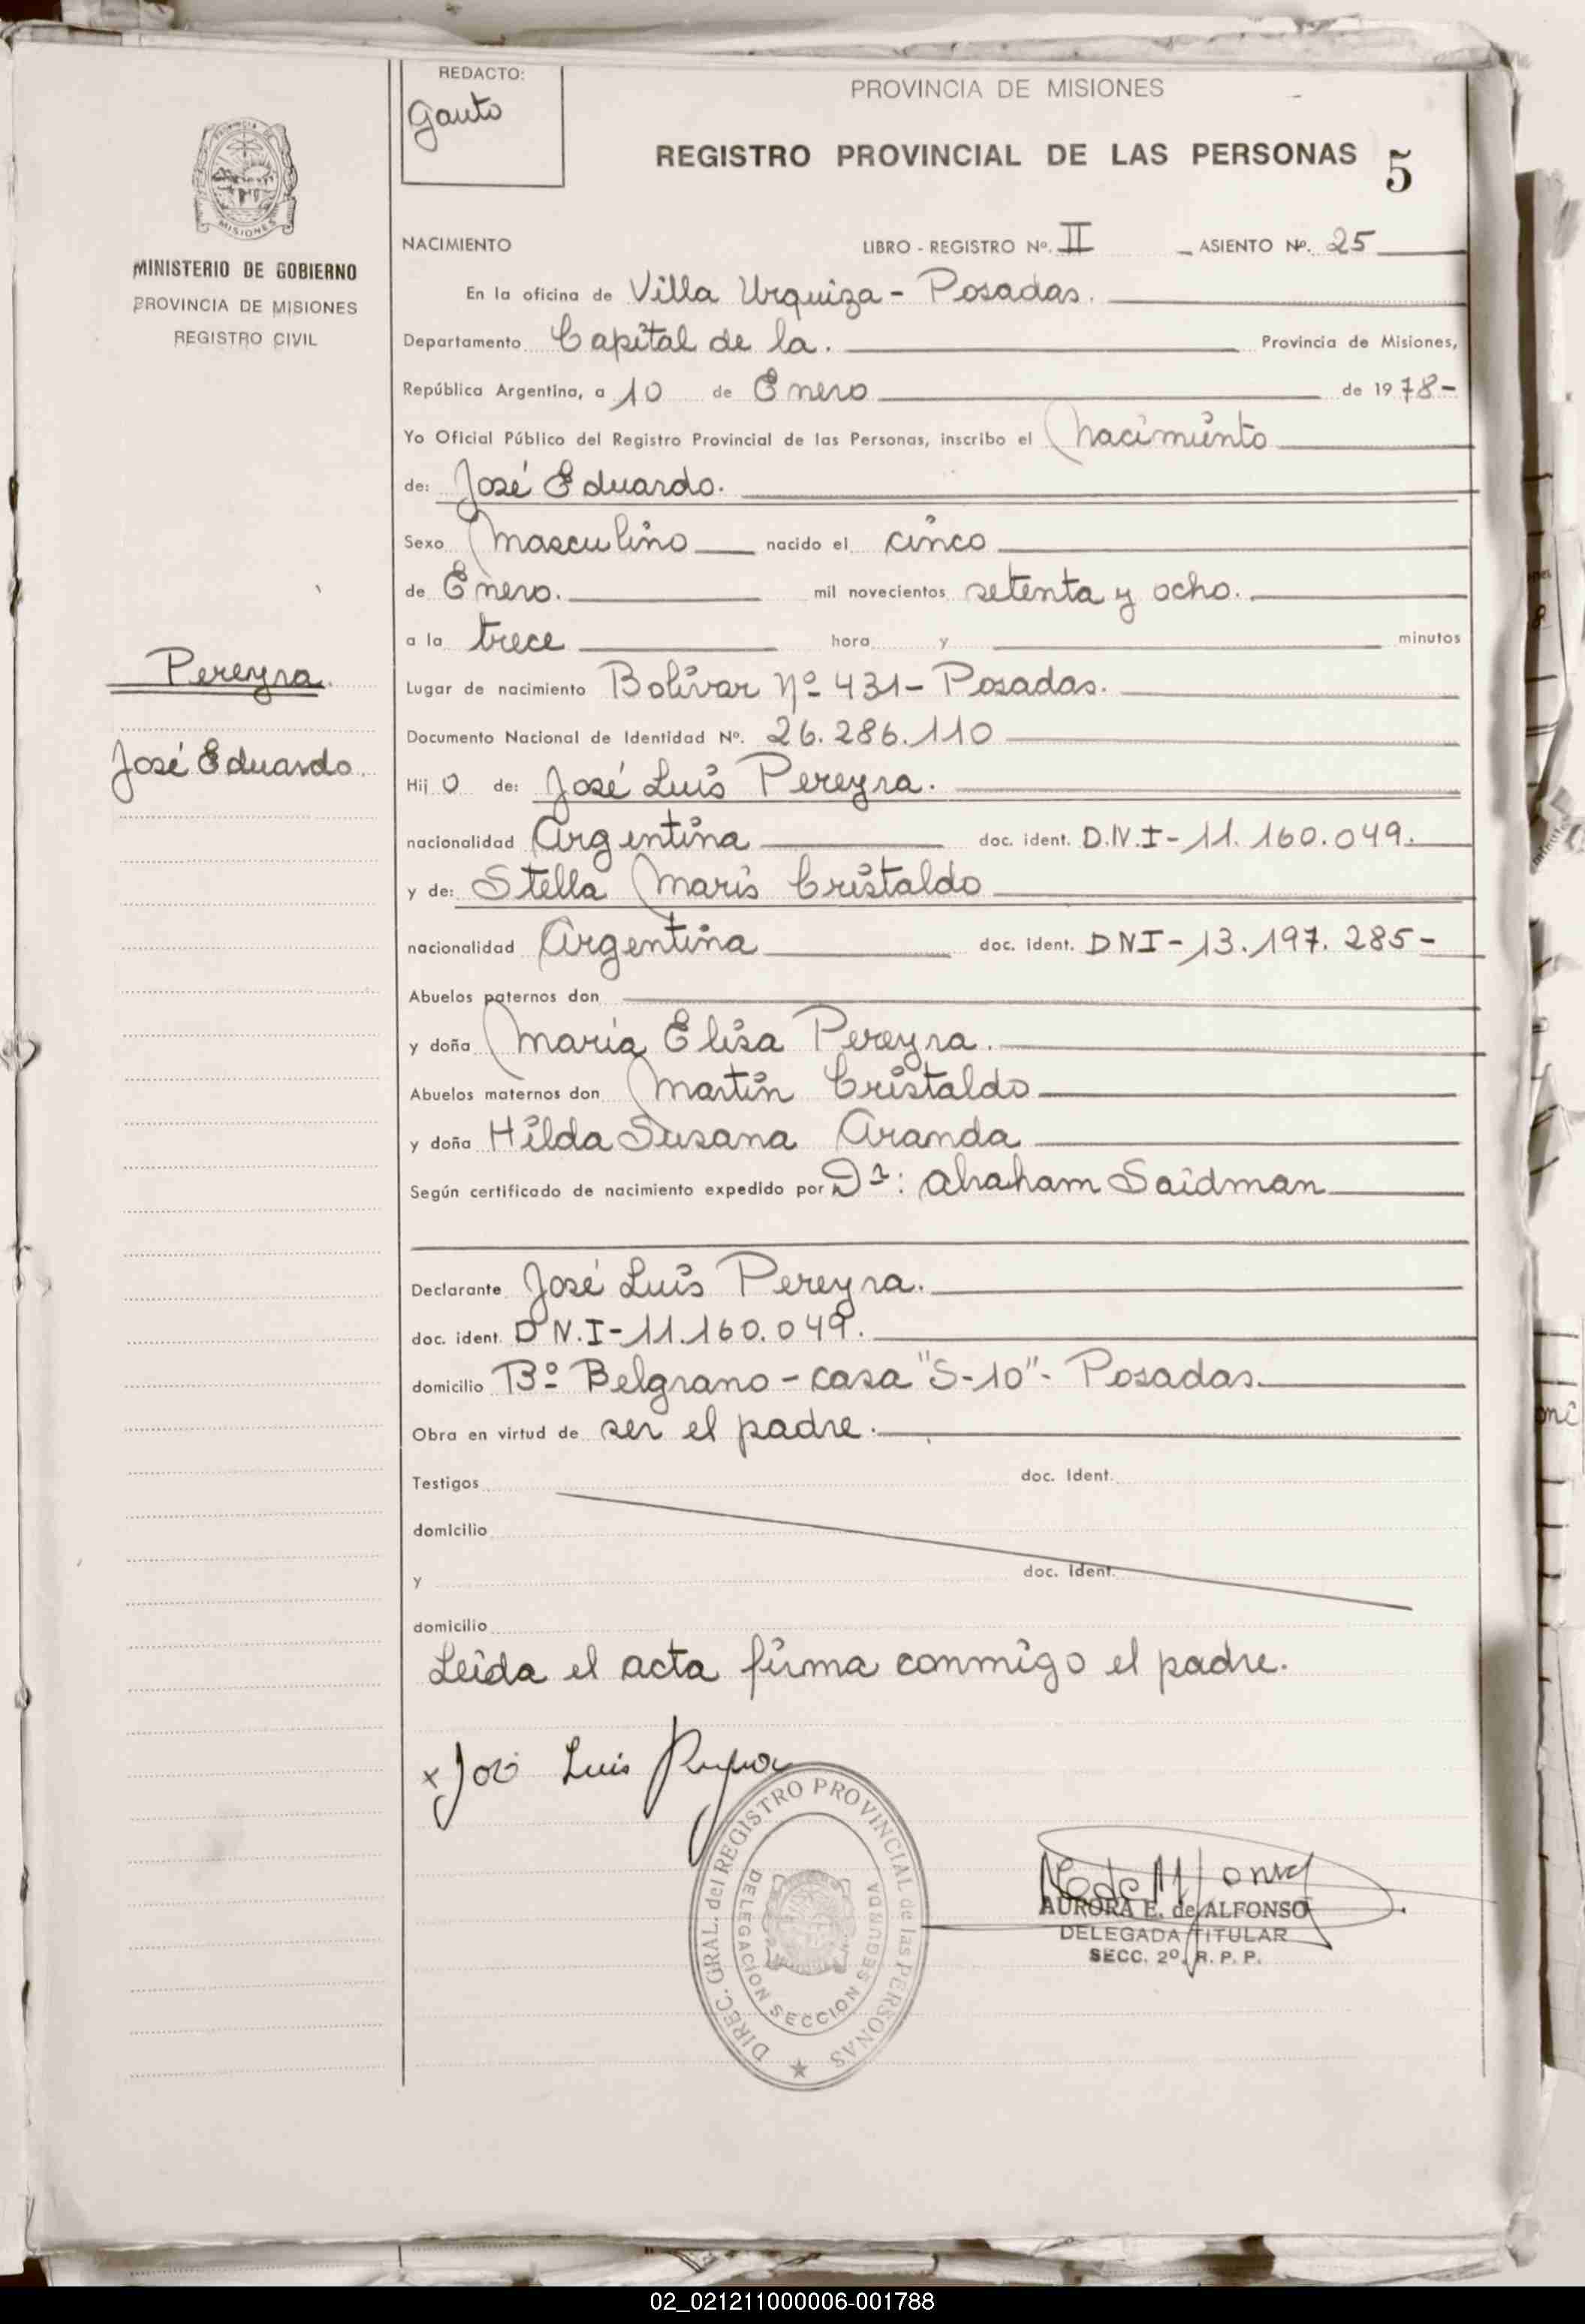 REDACTO:
Gauto
PROVINCIA DE MISIONES
REGISTRO PROVINCIAL DE LAS PERSONAS 5
PROVINCIA DE
MISIONES
MINISTERIO DE GOBIERNO
PROVINCIA DE MISIONES
REGISTRO CIVIL
Pereyra
José Eduardo
NACIMIENTO LIBRO - REGISTRO Nº. II ASIENTO Nº. 25
En la oficina de Villa Urquiza - Posadas.
Departamento Capital de la. Provincia de Misiones,
República Argentina, a 10 de Enero de 1978-
Yo Oficial Público del Registro Provincial de las Personas, inscribo el Nacimiento
de: José Eduardo.
Sexo Masculino nacido el cinco
de Enero. mil novecientos setenta y ocho.
a la trece hora y minutos
Lugar de nacimiento Bolívar Nº 431- Posadas.
Documento Nacional de Identidad Nº. 26.286.110
Hij o de: José Luis Pereyra.
nacionalidad Argentina doc. ident. D.N.I-11.160.049.
y de: Stella Maris Cristaldo
nacionalidad Argentina doc. ident. DNI-13.197.285-
Abuelos paternos don
y doña María Elisa Pereyra.
Abuelos maternos don Martín Cristaldo
y doña Hilda Susana Aranda
Según certificado de nacimiento expedido por Dr: Abraham Saidman
Declarante José Luis Pereyra.
doc. ident. D N.I-11.160.049.
domicilio Bº Belgrano - casa "S-10"- Posadas.
Obra en virtud de ser el padre.
Testigos doc. Ident.
domicilio
y doc. Ident.
domicilio
Leída el acta firma conmigo el padre.
x José Luis Pereyra
DIREC. GRAL. del REGISTRO PROVINCIAL de las PERSONAS
DELEGACION SECCION SEGUNDA
AURORA E. de ALFONSO
DELEGADA TITULAR
SECC. 2º. R. P. P.
02_021211000006-001788